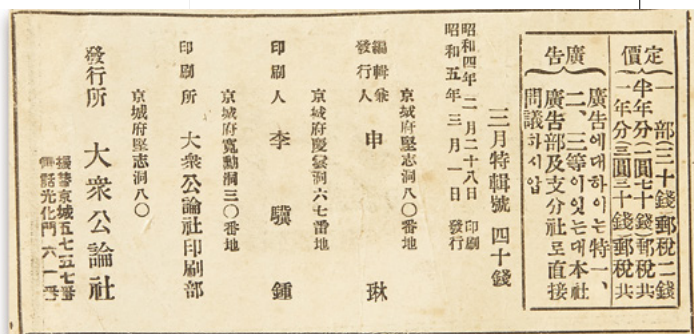 定價
一部(三十錢)郵稅二錢
半年分(一圓七十錢)郵稅共
一年分(三圓三十錢)郵稅共
廣告
廣告에대하이는特一、
二、三等이잇는대本社
廣告部及支分社로直接
問議하시압
三月特輯號 四十錢
昭和四年 二月二十八日 印刷
昭和五年 三月一日 發行
京城府堅志洞八〇番地
編輯兼發行人 申琳
京城府慶雲洞六七番地
印刷人 李驥鍾
京城府寬勳洞三〇番地
印刷所 大衆公論社印刷部
京城府堅志洞八〇
發行所 大衆公論社
振替京城五七五七番
電話光化門六一番